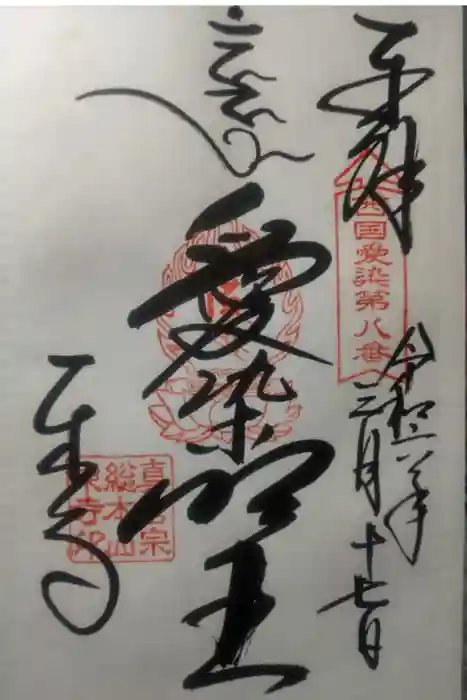 奉拝
西国愛染第八番
令和六年
三月十七日
愛染明王
東寺
真言宗
総本山
東寺印